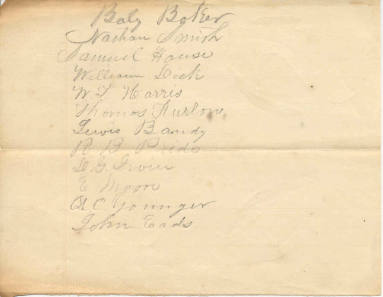 Baly Baker
Nathan Smith
Samuel House
William Dock
W L Harris
Thomas Furlow
Lewis Bandy
R B
D G
E Moon
A C Younger
John Eads